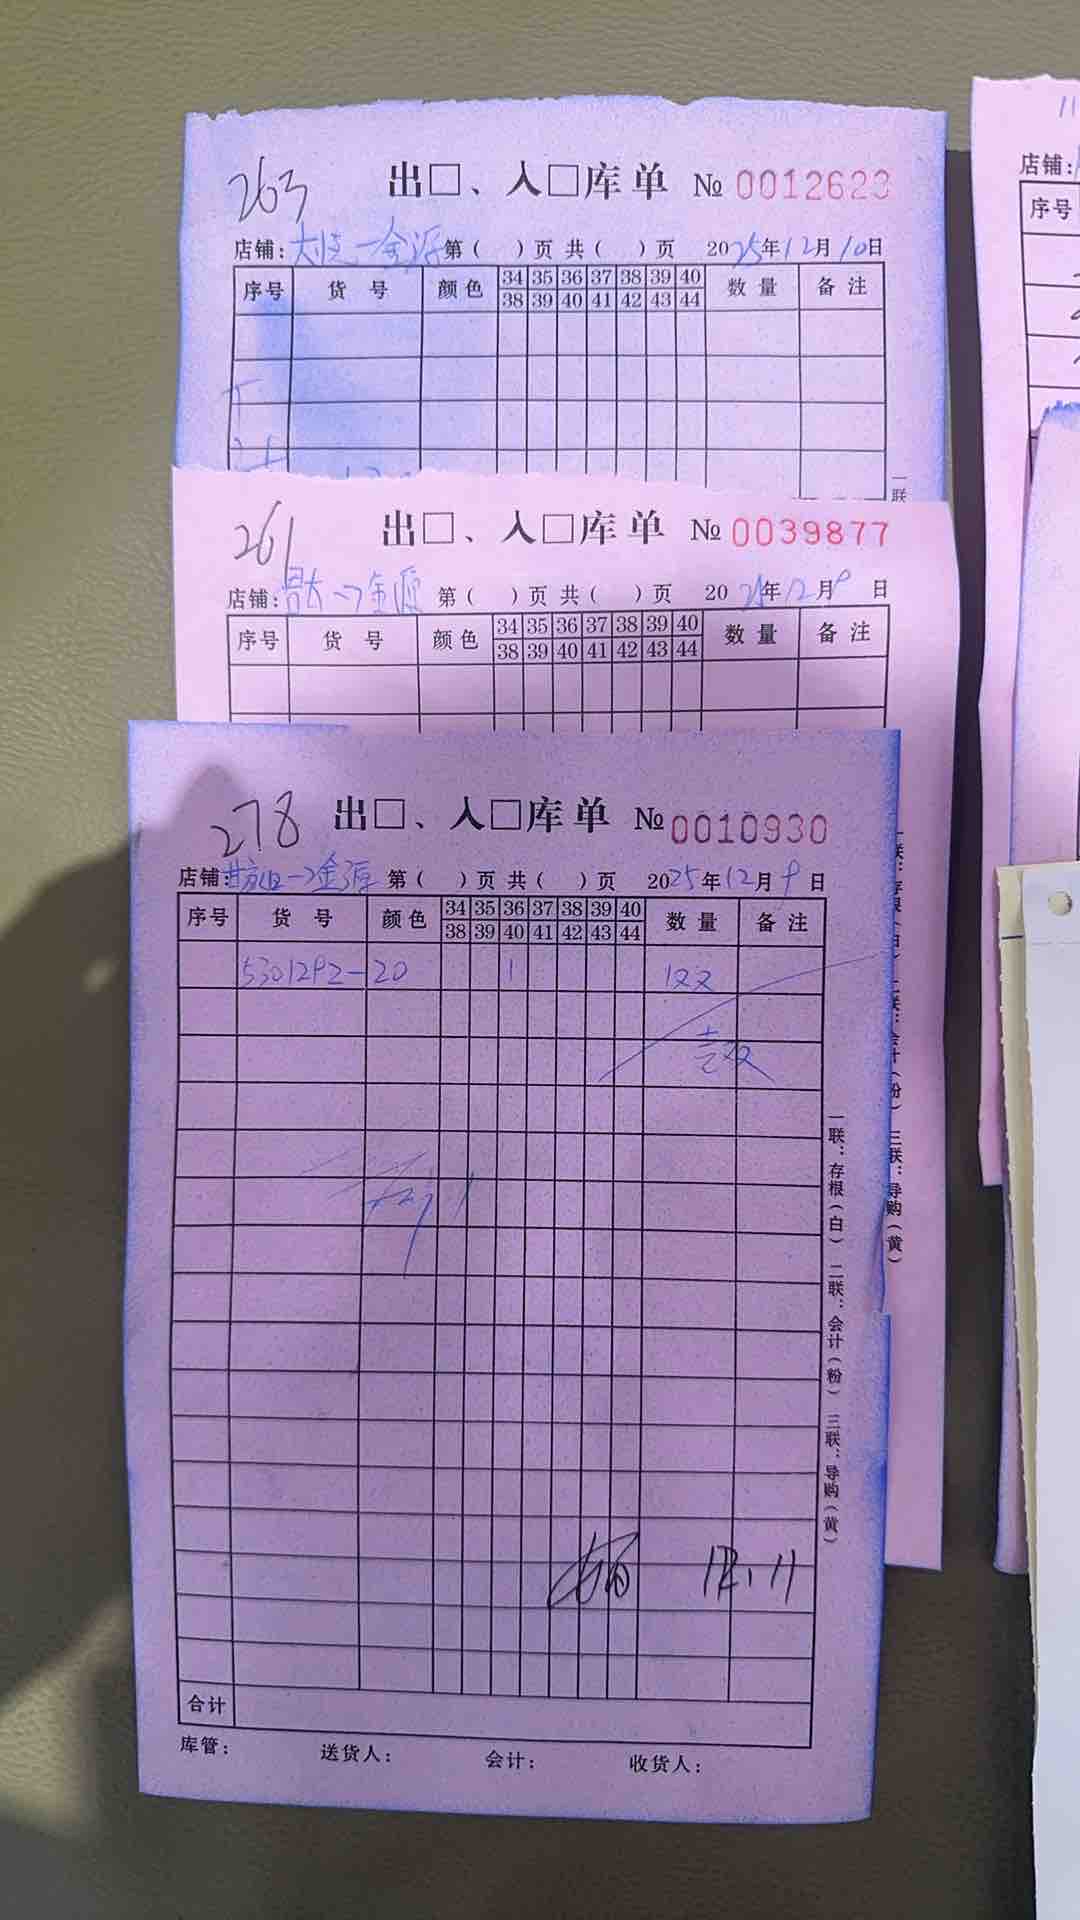 263
出□、入□库单 № 0012623
店铺: 金源 第( )页 共( )页 2025年12月10日
序号 货号 颜色 34 35 36 37 38 39 40 数量 备注
38 39 40 41 42 43 44
一联
261
出□、入□库单 № 0039877
店铺: 金源 第( )页 共( )页 2025年12月9日
序号 货号 颜色 34 35 36 37 38 39 40 数量 备注
38 39 40 41 42 43 44
278
出□、入□库单 № 0010930
店铺: 金源 第( )页 共( )页 2025年12月9日
序号 货号 颜色 34 35 36 37 38 39 40 数量 备注
38 39 40 41 42 43 44
5301292-20 1 1双
壹双
12.11
合计
库管: 送货人: 会计: 收货人:
一联:存根(白) 二联:会计(粉) 三联:导购(黄)
一联:存根(白) 二联:会计(粉) 三联:导购(黄)
11
店铺:
序号